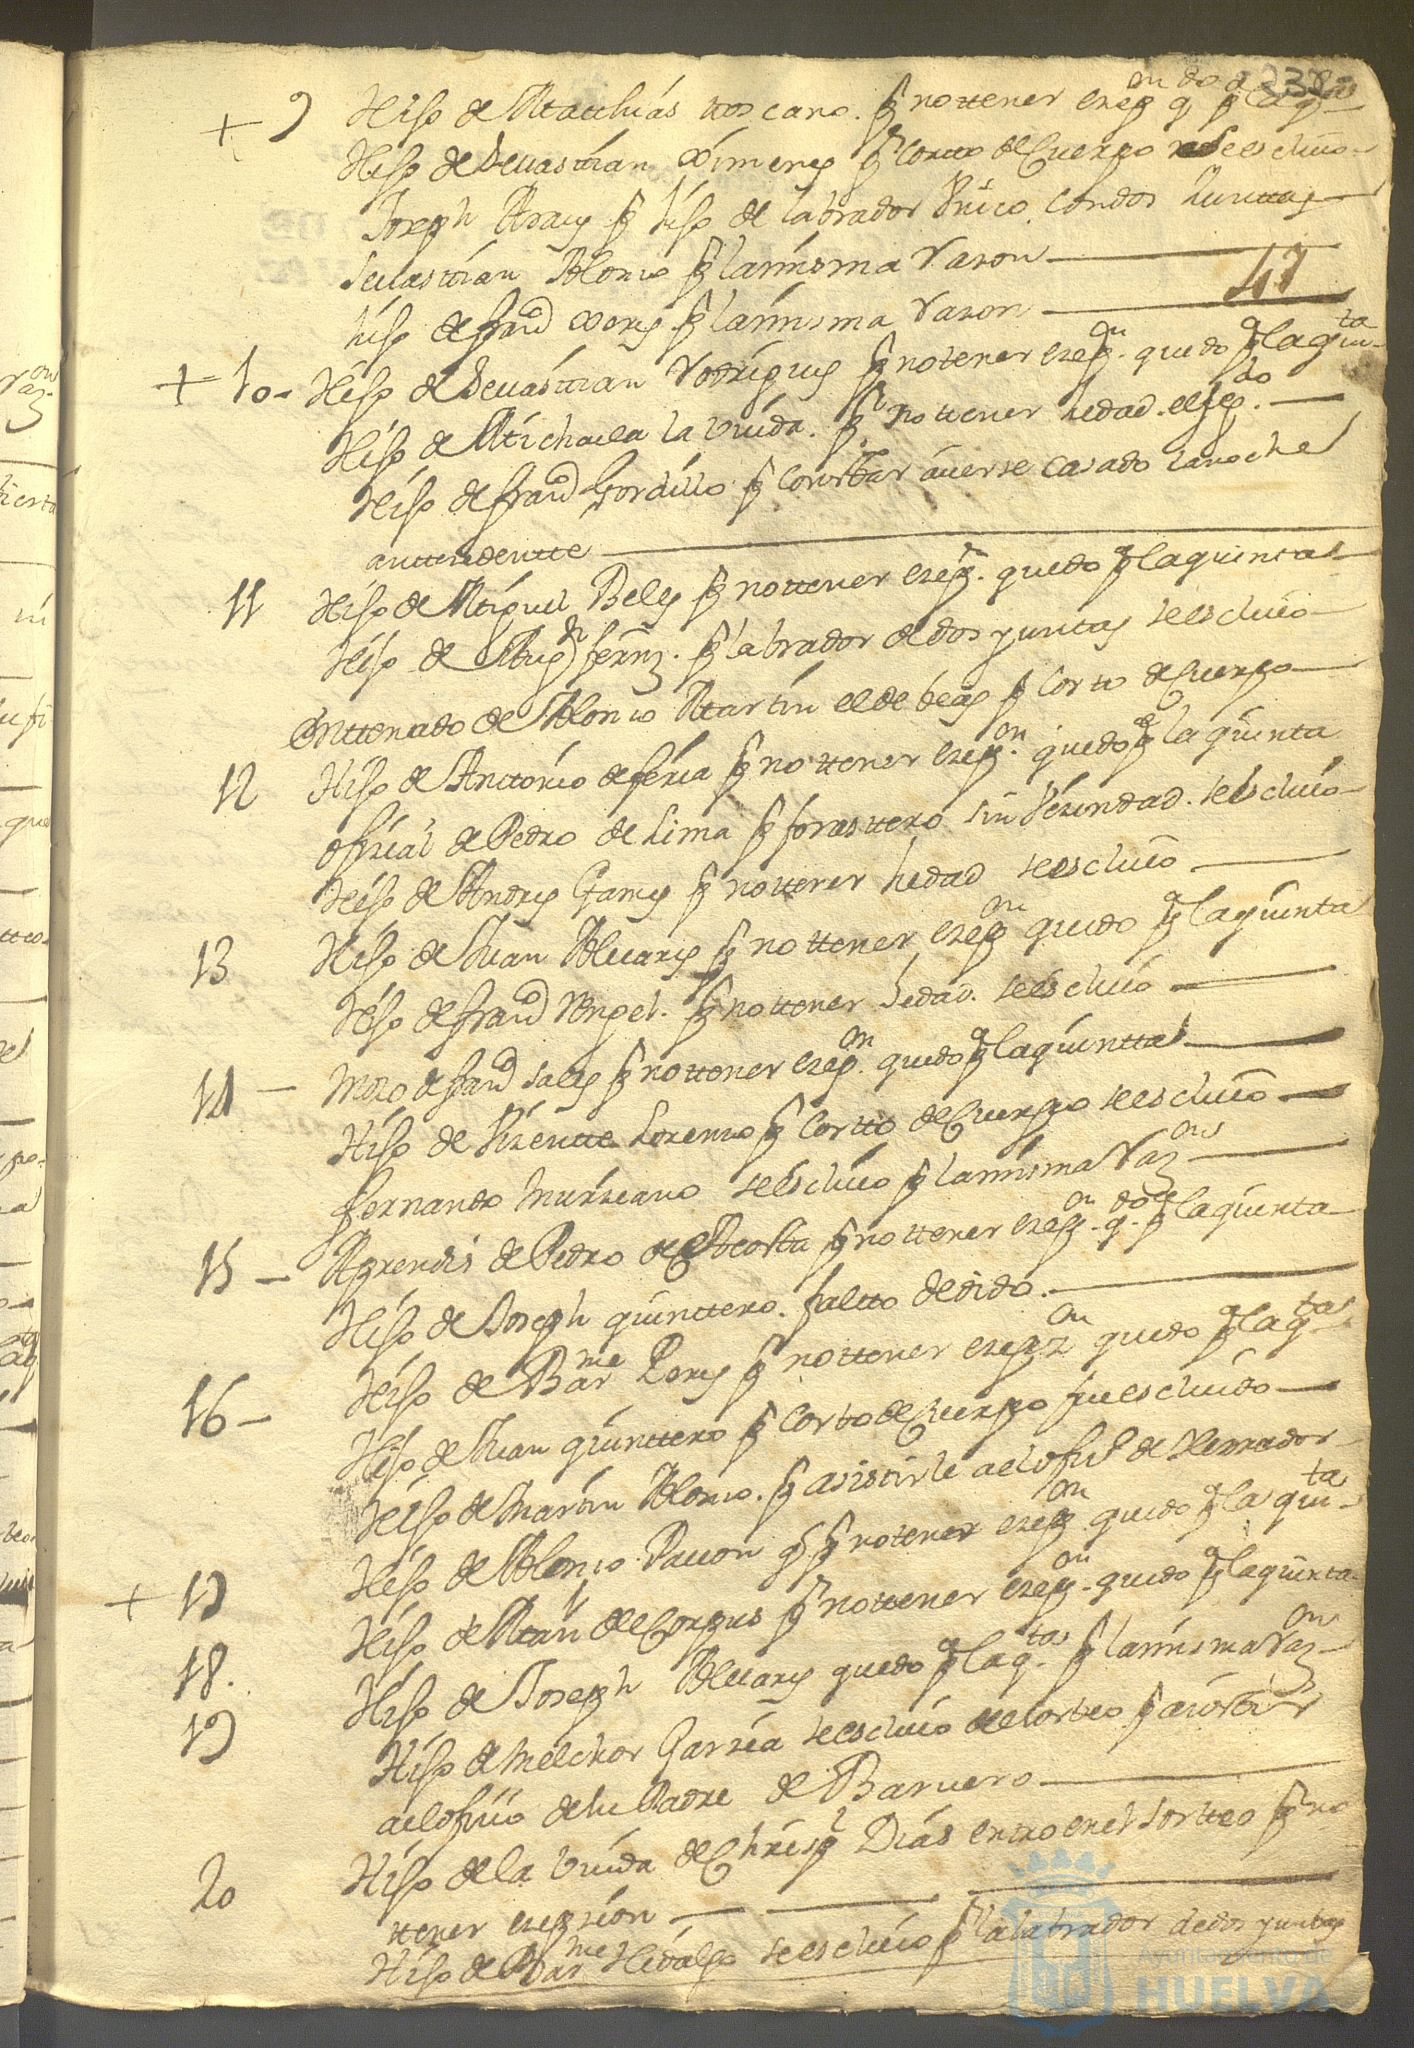 + 9 Hijo de Matthias toscano. p no ttener exep.on q.do p la q.ta
Hijo de Sevastian Ximenes p.r corto de Cuerpo se escluio
Joseph Araus p hijo de labrador Unico con dos Yuntas
Sevastian Alonso p la misma rason
47
hijo de fran.co Peres p la misma rason
+ 10 - Hijo de Sevastian Rodrigues p no tener exep.on quedo p la quin.ta
Hijo de Michaela la viuda. p.r no ttener hedad. es
Hijo de fran.co Gordillo p constar averse casado la noche
anttesedentte
11 Hijo de Miguel Beles p no ttener exep.n quedo p la quinta
Hijo de fern.z p labrador de dos yuntas se escluio
Enttenado de Alonso Martin el de beas p corto de Cuerpo
12 Hijo de Anttonio de feria p no ttener exep.on quedo p la quinta
ofisial de Pedro de Lima p forasttero sin Vesindad. se escluio
Hijo de Andres Games p no ttener hedad se escluio
13 Hijo de Juan Alvares p no ttener exep.on quedo p la quinta
Hijo de fran.co Angel. p no ttener hedad. se escluio
14 - Moso de fran.co Sales p no ttener exep.on quedo p la quintta
Hijo de Visentte Lorenso p cortto de Cuerpo se escluio
Fernando Mursiano se escluio p la misma Raz.on
15 - Aprendis de Pedro de Acosta p no ttener exep.on q.do p la quinta
Hijo de Joseph quinttero. faltto de dido.
16 - Hijo de Bar.me Peres p no ttener exep.on quedo p la q.ta
Hijo de Juan quinttero p corto de Cuerpo fue escluido
Hijo de Martin Alonso. p asistirle a el ofis.o de Herrador
+ 17 Hijo de Alonso Pavon p no tener exep.on quedo p la quin.ta
18. Hijo de de Corpus p no ttener exep.on quedo p la quinta
19 Hijo de Joseph Alvares quedo p la q.ta p la misma Raz.on
Hijo de Melchor Garsia se escluio de el sorteo p asistir
a el ofisio de su Padre de Barvero
20 Hijo de la viuda de Christ.l Dias entro en el sortteo p no
ttener exepsion
Hijo de Bar.me Hidalgo se escluio p labrador de dos yuntas
Ayuntamiento de
HUELVA